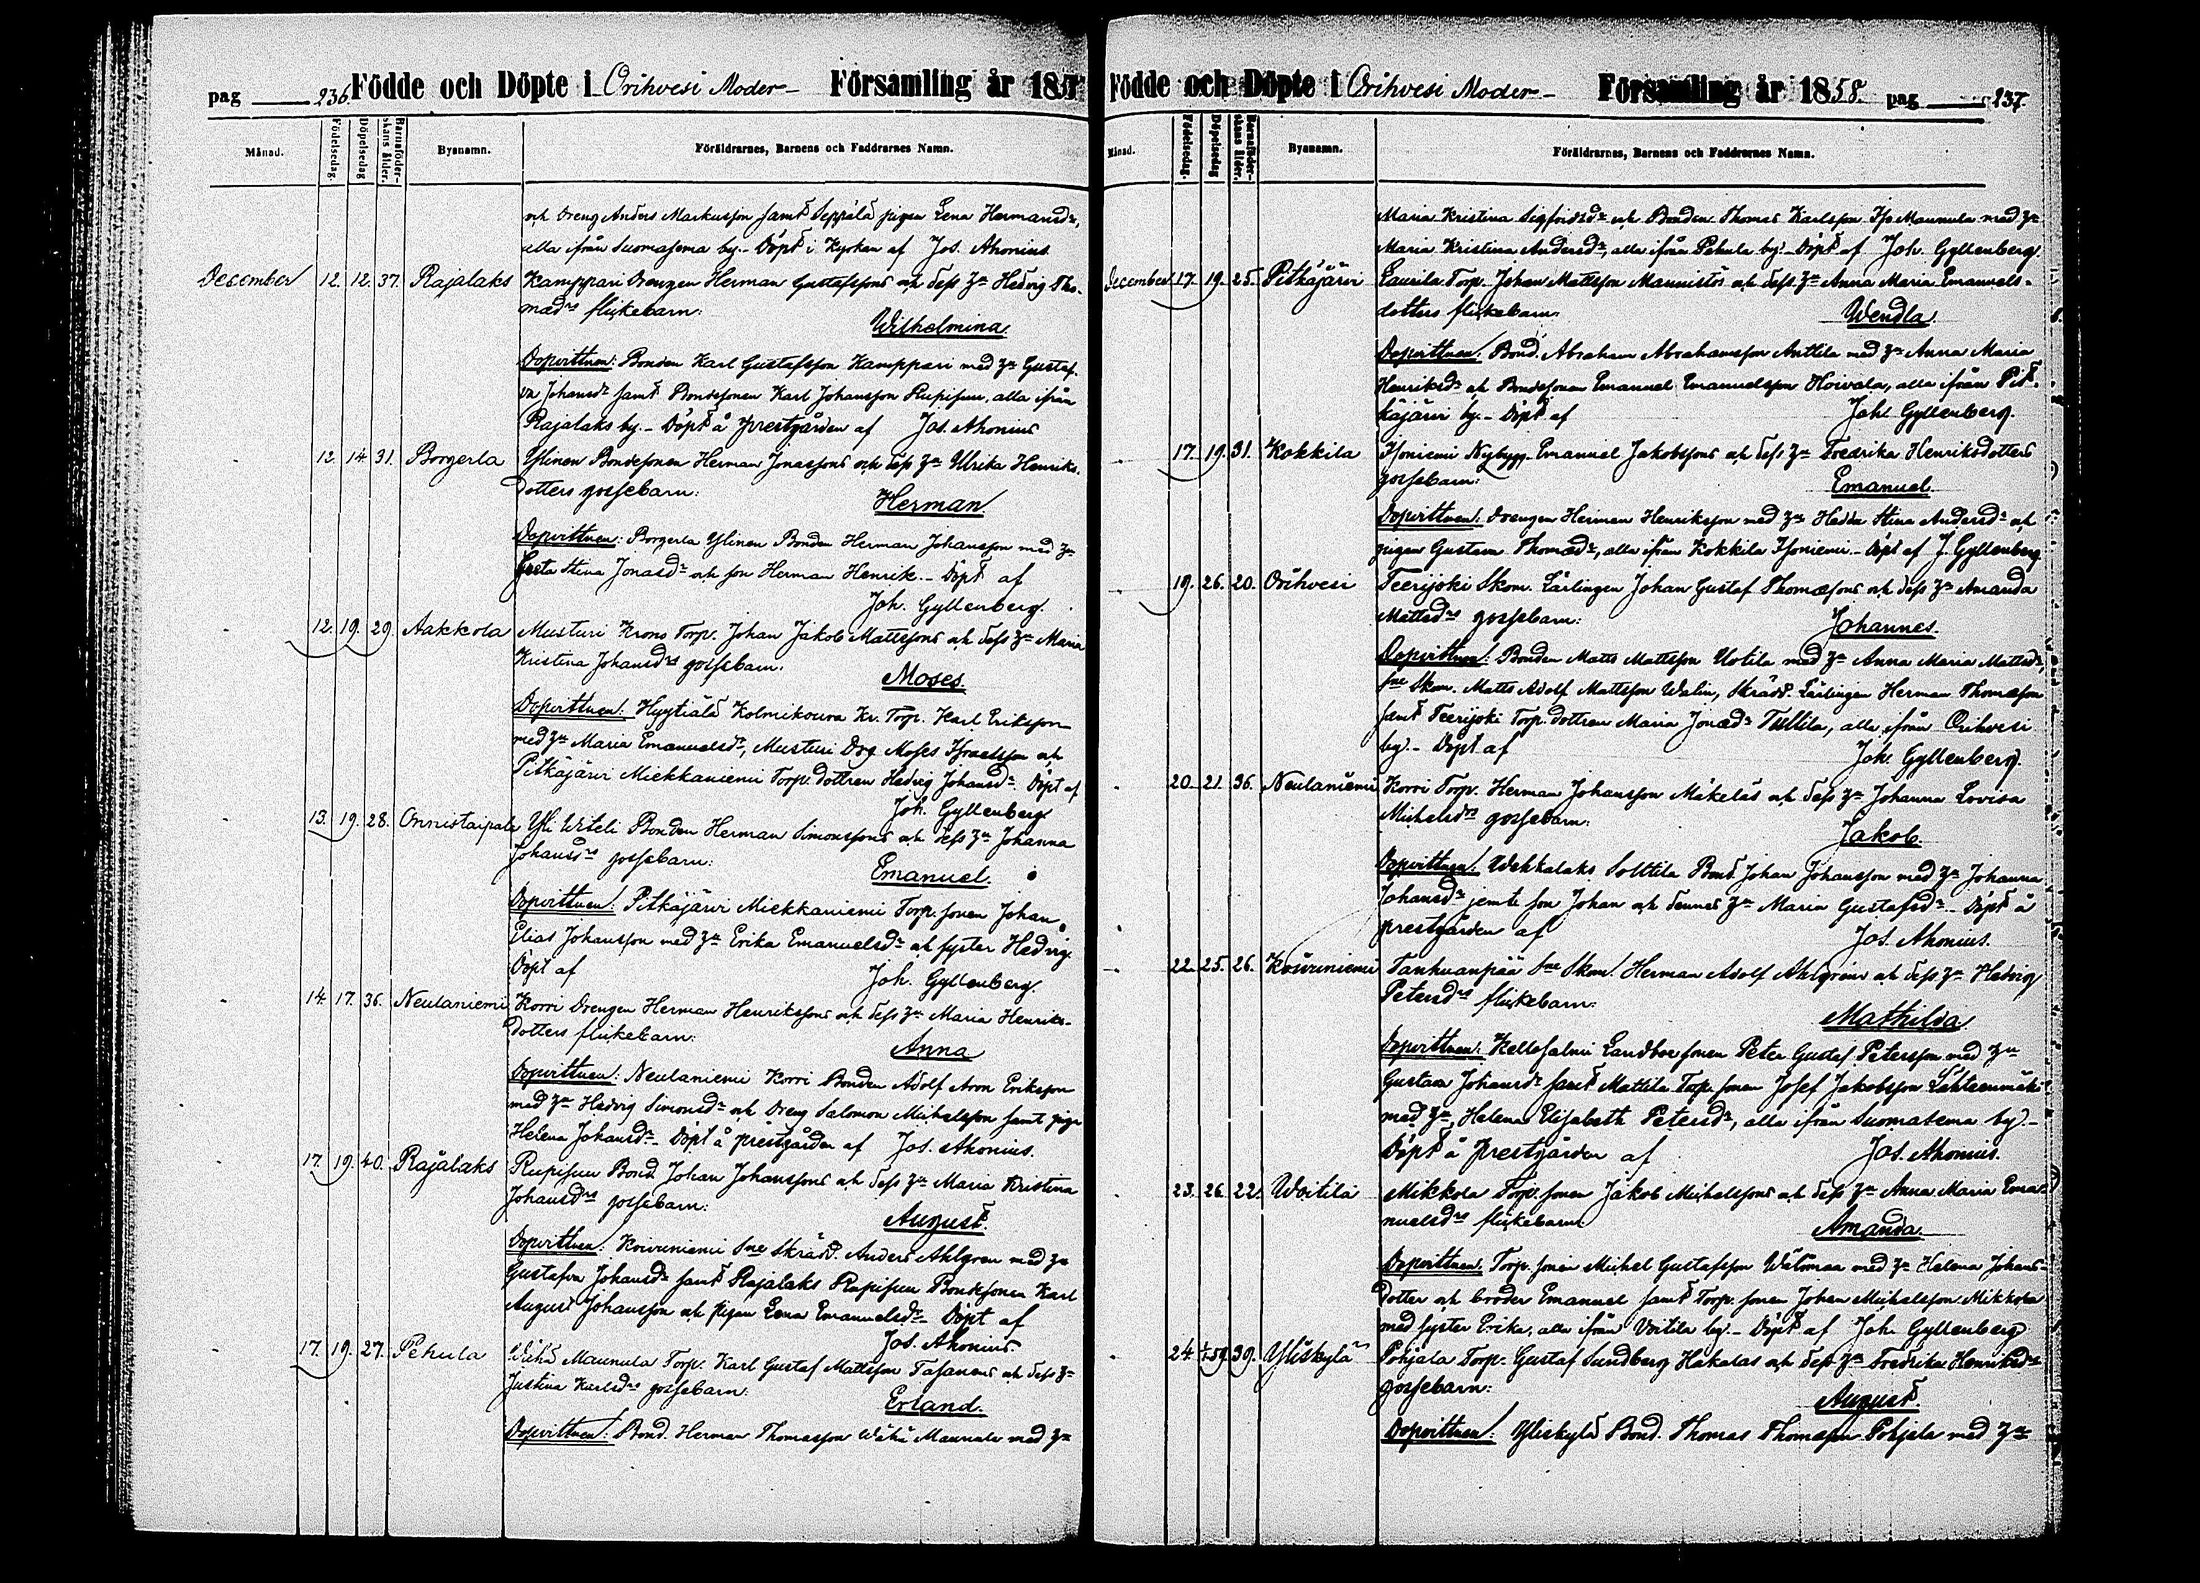 pag 236. Födde och Döpte i Orihvesi Moder- Församling år 185
Månad. Födelsedag. Döpelsedag Barnaföderskans ålder. Bynamn. Föräldrarnes, Barnens och Faddrarnes Namn.
och Dreng Anders Markusson samt Seppälä pigan Lena Hermansdr,
alla ifrån Suomasema by. - Döpt i Kyrkan af Jos. Ahonius
December 12. 12. 37. Rajalaks Kamppari Drengen Herman Gustafssons och dess Hu Hedvig Tho-
masdrs flickebarn: Wilhelmina.
Dopvittnen: Bonden Karl Gustafsson Kamppari med Hu Gustaf-
va Johansdr samt Bondesonen Karl Johansson Rupisuu, alla ifrån
Rajalaks by. - Döpt å prestgården af Jos. Ahonius
12. 14. 31. Borgerla Ylinen Bondesonen Herman Jonassons och dess Hu Ulrika Henriks-
dotters gossebarn: Herman.
Dopvittnen: Borgerla Ylinen Bonden Herman Johansson med Hu
Greta Stina Jonasdr och son Herman Henrik. - Döpt af
Joh. Gyllenberg.
12. 19. 29. Aakkola Musturi Krono Torp. Johan Jakob Mattssons och dess Hu Maria
Kristina Johansdrs gossebarn. Moses.
Dopvittnen: Hyytiälä Kolmikoura Kr. Torp. Karl Eriksson
med Hu Maria Emanuelsdr, Musturi Drg Moses Israelsson och
Pitkäjärvi Miekkaniemi Torp. dottren Hedvig Johansdr. Döpt af
Joh. Gyllenberg.
13. 19. 28. Onnistaipale Yli Witeli Bonden Herman Simonssons och dess Hu Johanna
Johansdrs gossebarn: Emanuel.
Dopvittnen: Pitkäjärvi Miekkaniemi Torp. sonen Johan
Elias Johansson med Hu Erika Emanuelsdr och syster Hedvig.
Döpt af Joh. Gyllenberg.
14. 17. 36. Neulaniemi Korri Drengen Herman Henrikssons och dess Hu Maria Henriks-
dotters flickebarn: Anna
Dopvittnen: Neulaniemi Korri Bonden Adolf Aron Eriksson
med Hu Hedvig Simonsdr och Dreng Salomon Michelsson samt piga
Helena Johansdr. - Döpt å prestgården af Jos. Ahonius.
17. 19. 40. Rajalaks Rupisuu Bond. Johan Johanssons och dess Hu Maria Kristina
Johansdrs gossebarn: August.
Dopvittnen: Koivuniemi Sne Skrädd. Anders Ahlgren med Hu
Gustafva Johansdr samt Rajalaks Rupisuu Bondesonen Karl
August Johansson och pigan Lena Emanuelsdr. Döpt af
Jos. Ahonius
17. 19. 27. Pehula Wähä Maunula Torp. Karl Gustaf Mattsson Tasanens och dess Hu
Justina Karlsdrs gossebarn: Erland.
Dopvittnen: Bond. Herman Thomasson Wähä Maunula med Hu
Födde och Döpte i Orihvesi Moder- Församling år 1858. pag 237.
Månad. Födelsedag. Döpelsedag Barnaföderskans ålder. Bynamn. Föräldrarnes, Barnens och Faddrarnes Namn.
Maria Kristina Sigfridsdr och Bonden Thomas Karlsson Iso Maunula med Hu
Maria Kristina Andersdr, alla ifrån Pehula by. - Döpt af Joh. Gyllenberg.
December 17. 19. 25. Pitkäjärvi Laurila Torp. Johan Mattsson Mannistös och dess Hu Anna Maria Emanuels-
dotters flickebarn: Wendla.
Dopvittnen: Bond. Abraham Abrahamsson Anttila med Hu Anna Maria
Henriksdr och Bondesonen Emanuel Emanuelsson Hoivala, alla ifrån Pit-
käjärvi by. - Döpt af Joh. Gyllenberg.
17. 19. 31. Kokkila Isoniemi Nybygg. Emanuel Jakobssons och dess Hu Fredrika Henriksdotters
gossebarn: Emanuel.
Dopvittnen: Drengen Herman Henriksson med Hu Hedda Stina Andersdr och
pigan Gustava Thomasdr, alla ifrån Kokkila Isoniemi. - Döpt af J. Gyllenberg.
19. 26. 20. Orihvesi Teerijoki Skom. Lärlingen Johan Gustaf Thomassons och dess Hu Amanda
Mattsdrs gossebarn: Johannes.
Dopvittnen: Bonden Matts Mattsson Uotila med Hu Anna Maria Mattsdr,
Sne Skom. Matts Adolf Mattsson Walin, Skrädd. Lärlingen Herman Thomasson
samt Teerijoki Torp. dottren Maria Jonasdr Tultila, alla ifrån Orihvesi
by. - Döpt af Joh. Gyllenberg.
20. 21. 36. Neulaniemi Korri Torp. Herman Johansson Mäkeläs och dess Hu Johanna Lovisa
Michelsdrs gossebarn: Jakob.
Dopvittnen: Wehkalaks Solttila Bond. Johan Johansson med Hu Johanna
Johansdr jemte son Johan och dennes Hu Maria Gustafsdr. - Döpt å
prestgården af Jos. Ahonius.
22. 25. 26. Koivuniemi Tanhuanpää Sne Skom. Herman Adolf Ahlgréns och dess Hu Hedvig
Petersdrs flickebarn: Mathilda
Dopvittnen: Kellosalmi Landboesonen Peter Gustaf Petersson med Hu
Gustava Johansdr samt Mattila Torp. sonen Josef Jakobsson Lähteenmäki
med Hu Helena Elisabeth Petersdr, alla ifrån Suomasema by. -
Döpt å prestgården af Jos. Ahonius.
23. 26. 22. Woitila Mikkola Torp. sonen Jakob Michelssons och dess Hu Anna Maria Ema-
nuelsdrs flickebarn: Amanda.
Dopvittnen: Torp. sonen Michel Gustafsson Wälimaa med Hu Helena Johans-
dotter och broder Emanuel samt Torp. sonen Johan Michelsson Mikkola
med syster Erika, alla ifrån Voitila by. - Döpt af Joh. Gyllenberg
24. 1/1 59. 39. Yliskylä Pohjala Torp. Gustaf Sundberg Hakalas och dess Hu Fredrika Henriksdrs
gossebarn: August.
Dopvittnen: Yliskylä Bond. Thomas Thomasson Pohjala med Hu